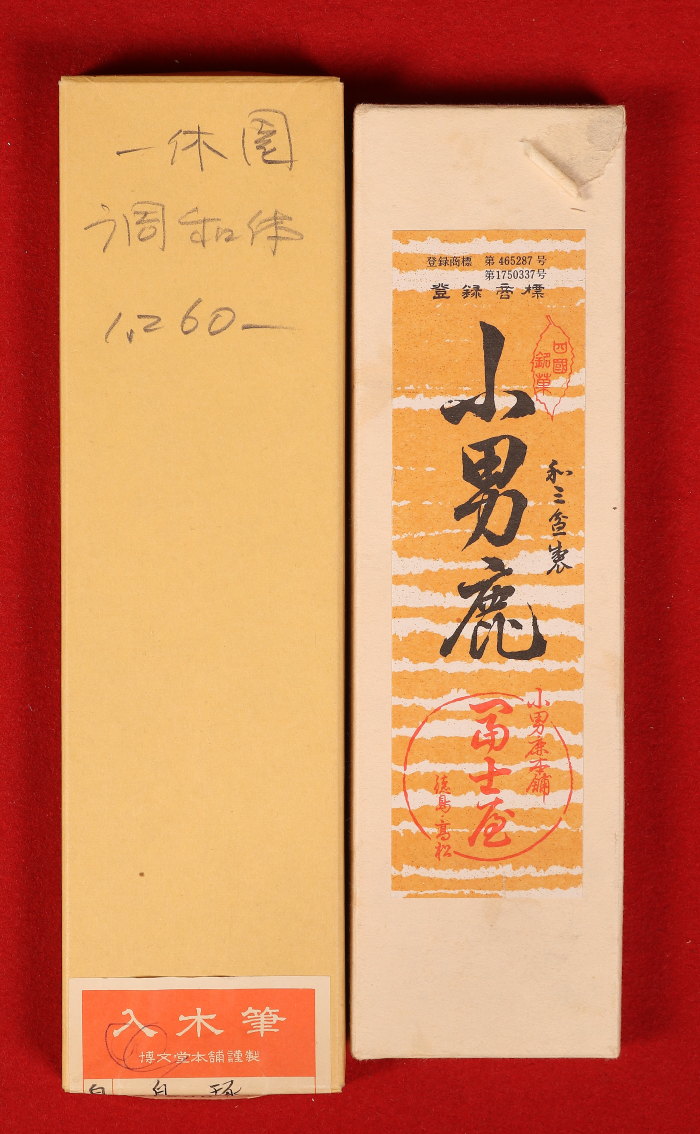 一休園
調和体
1,260−
入木筆
博文堂本舗謹製
登録商標 第465287号
第1750337号
登録商標
四國
銘菓
小男鹿
和三盆製
小男鹿本舗
冨士屋
徳島・高松